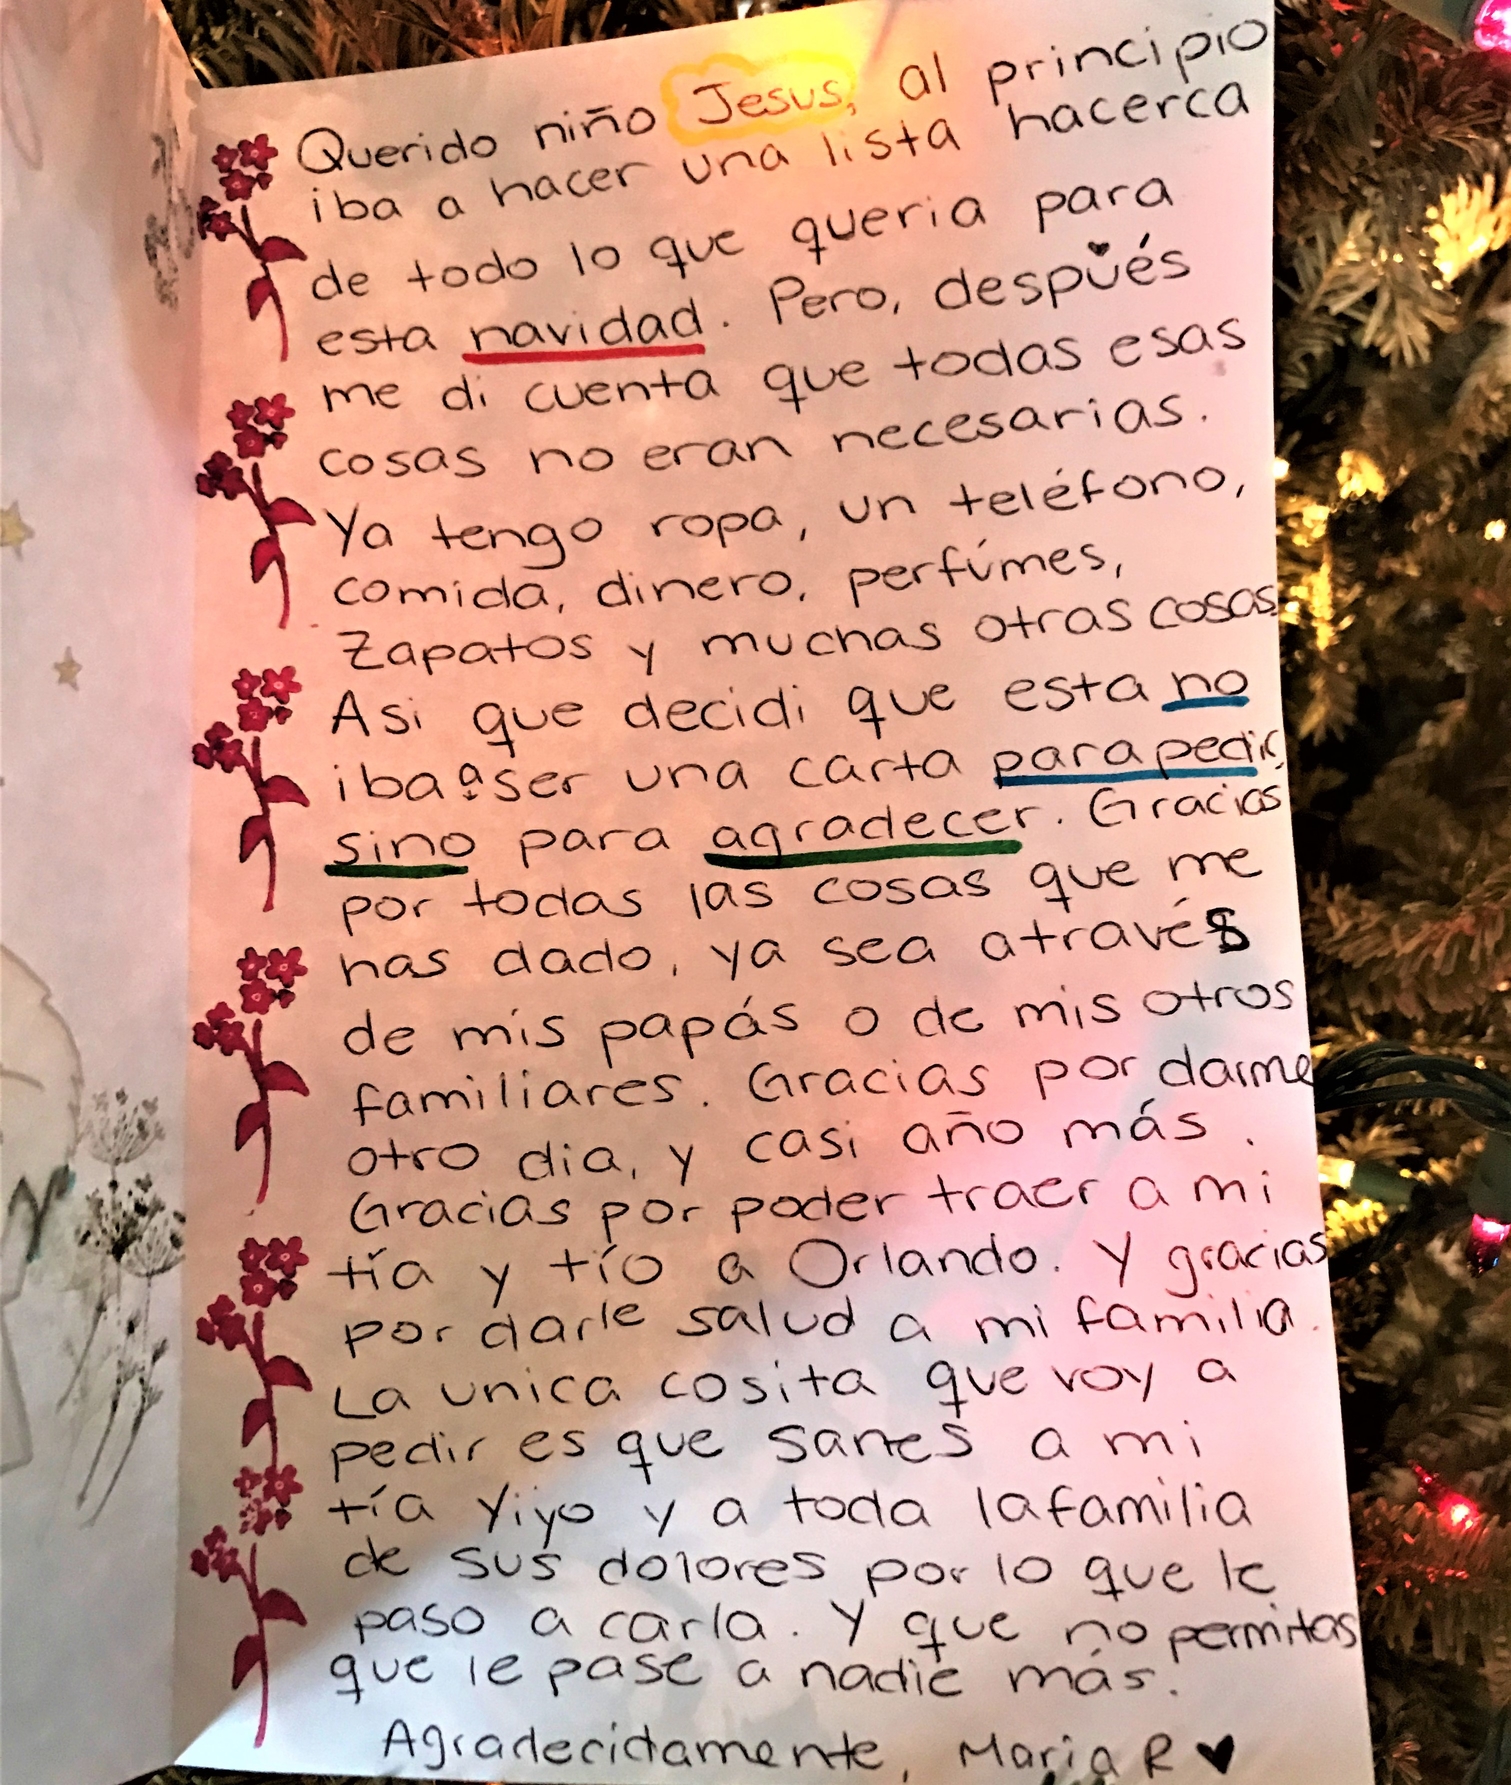 Querido niño Jesus, al principio
iba a hacer una lista hacerca
de todo lo que queria para
esta navidad. Pero, después
me di cuenta que todas esas
cosas no eran necesarias.
Ya tengo ropa, un teléfono,
comida, dinero, perfúmes,
Zapatos y muchas otras cosas.
Asi que decidi que esta no
iba a ser una carta para pedir,
sino para agradecer. Gracias
por todas las cosas que me
has dado, ya sea através
de mis papás o de mis otros
familiares. Gracias por darme
otro dia, y casi año más.
Gracias por poder traer a mi
tía y tío a Orlando. Y gracias
por darle salud a mi familia.
La unica cosita que voy a
pedir es que sanes a mi
tía Yiyo y a toda la familia
de sus dolores por lo que le
paso a carla. Y que no permitas
que le pase a nadie más.
Agradecidamente, Maria R ♥